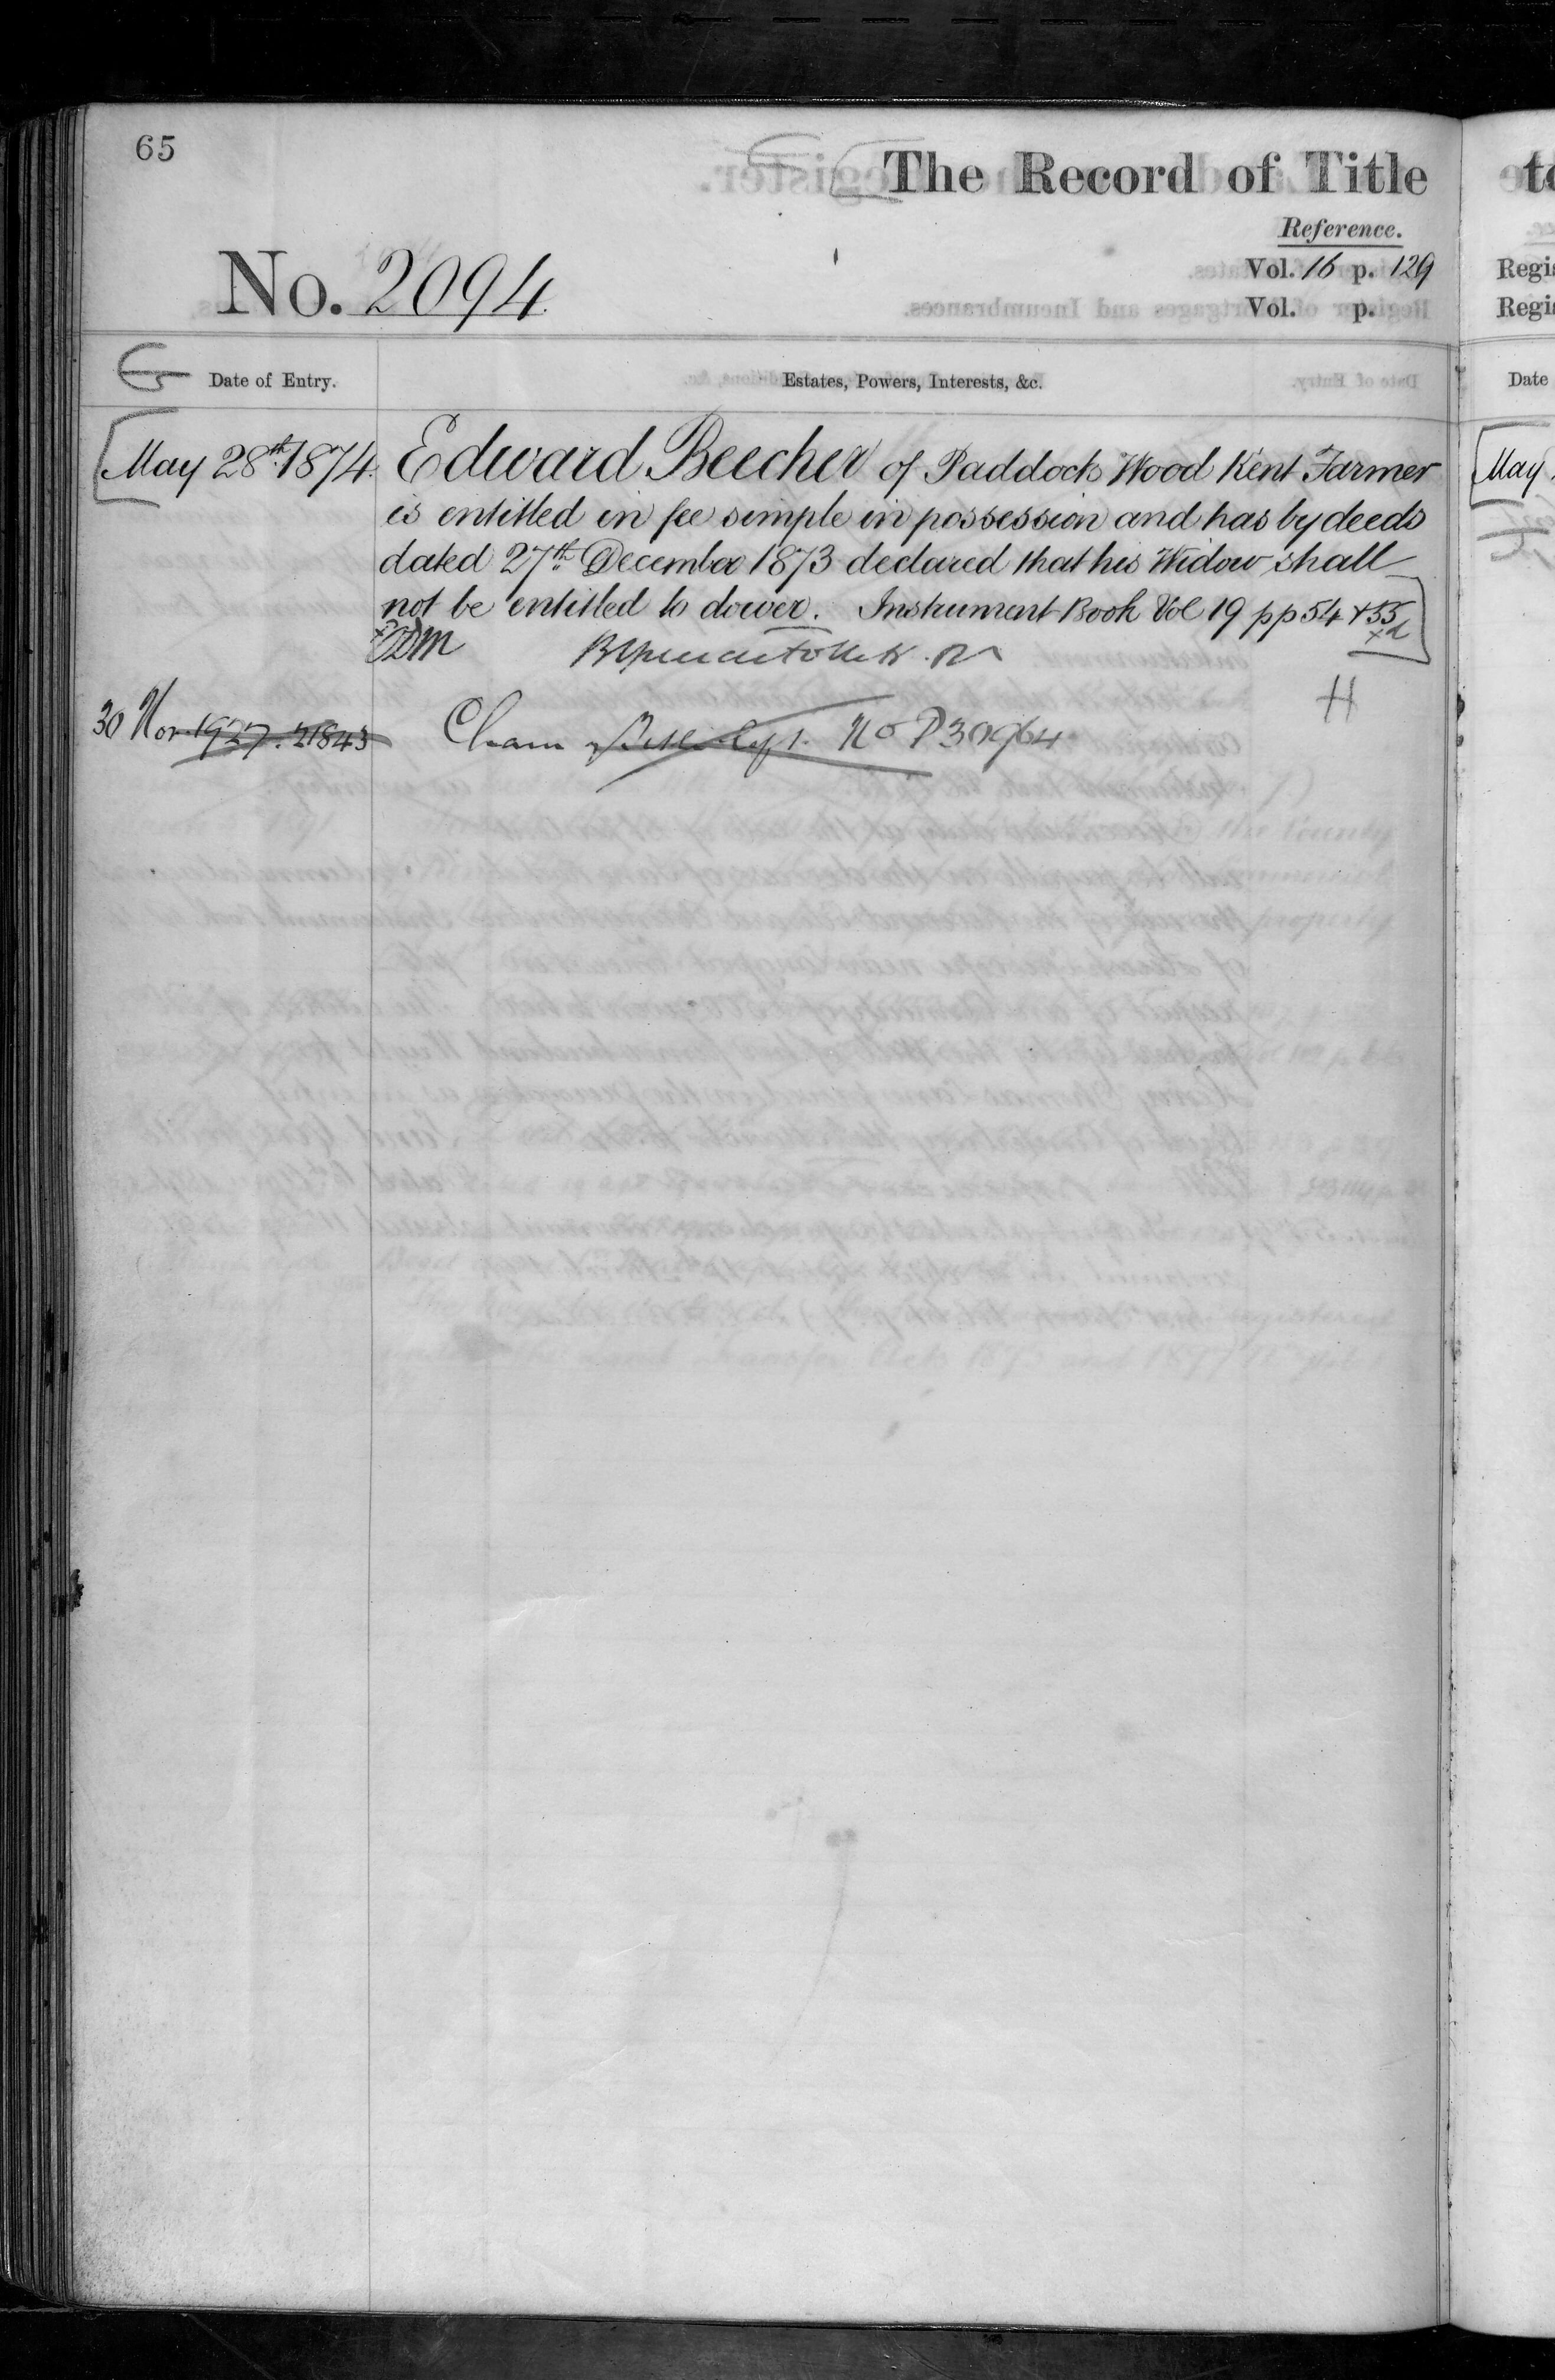 65
The Record of Title
Reference.
No. 2094
Vol. 16 p. 129
Vol. p.
Date of Entry.
Estates, Powers, Interests, &c.
May 28th 1874. Edward Beecher of Paddock Wood Kent Farmer
is entitled in fee simple in possession and has by deeds
dated 27th December 1873 declared that his Widow shall
not be entitled to dower. Instrument Book Vol 19 pp 54 & 55
H
30 Nov 1927. 21843
No P30964
to
Regis
Regis
Date
May